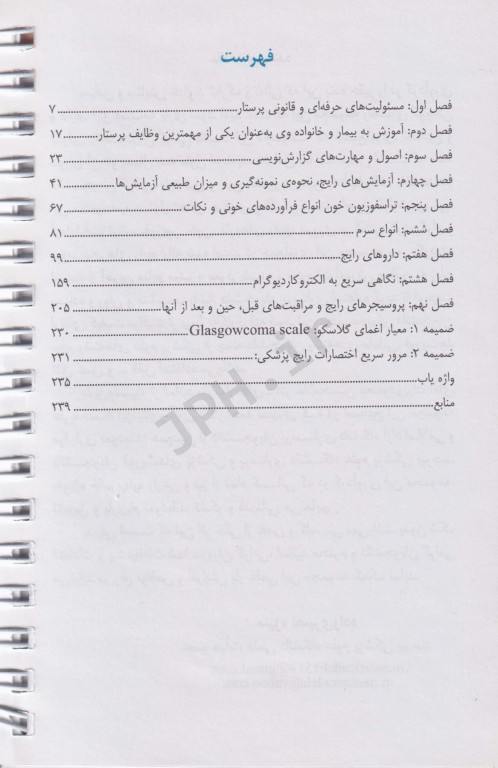 فهرست
فصل اول: مسئولیت‌های حرفه‌ای و قانونی پرستار ..... ۷
فصل دوم: آموزش به بیمار و خانواده وی به‌عنوان یکی از مهمترین وظایف پرستار ..... ۱۷
فصل سوم: اصول و مهارت‌های گزارش‌نویسی ..... ۲۳
فصل چهارم: آزمایش‌های رایج، نحوه‌ی نمونه‌گیری و میزان طبیعی آزمایش‌ها ..... ۴۱
فصل پنجم: ترانسفوزیون خون انواع فرآورده‌های خونی و نکات ..... ۶۷
فصل ششم: انواع سرم ..... ۸۱
فصل هفتم: داروهای رایج ..... ۹۹
فصل هشتم: نگاهی سریع به الکتروکاردیوگرام ..... ۱۵۹
فصل نهم: پروسیجرهای رایج و مراقبت‌های قبل، حین و بعد از آنها ..... ۲۰۵
ضمیمه ۱: معیار اغمای گلاسکو: Glasgowcoma scale ..... ۲۳۰
ضمیمه ۲: مرور سریع اختصارات رایج پزشکی: ..... ۲۳۱
واژه یاب ..... ۲۳۵
منابع ..... ۲۳۹
JPH.ir